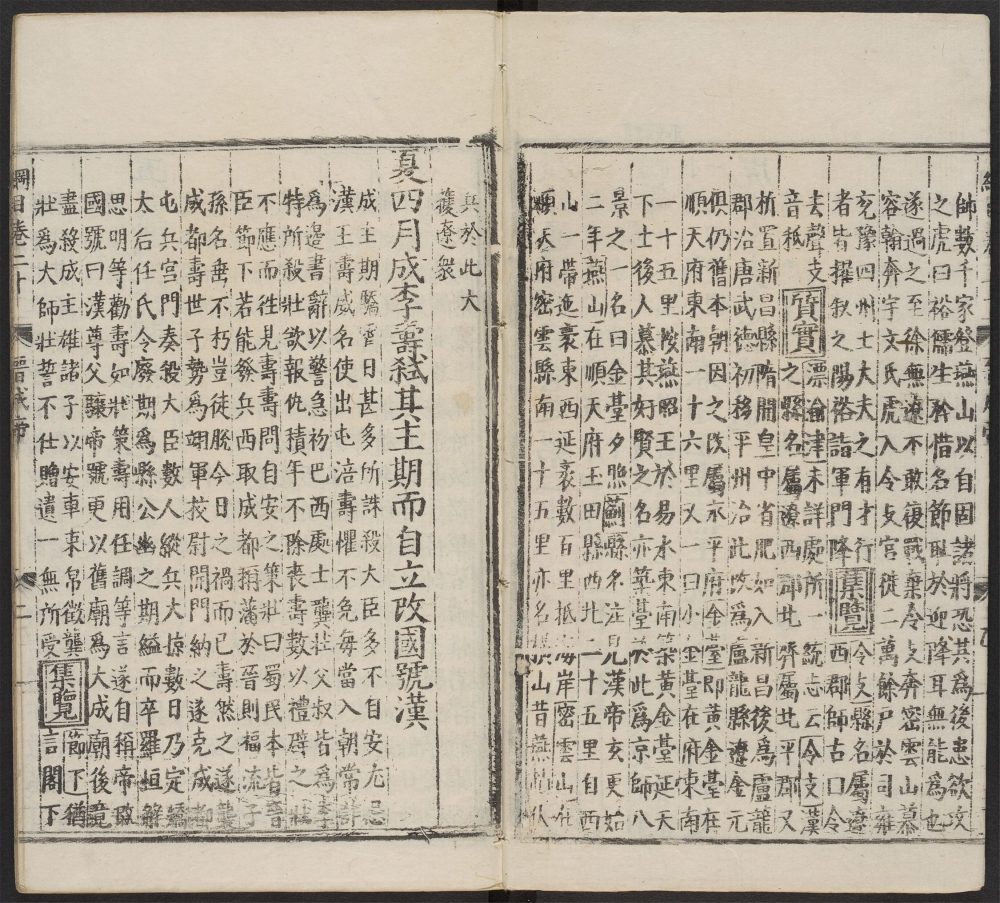 師數千家登燕山以自固諸將恐其爲後患欲攻
之虎曰裕儒生矜惜名節耻於迎降耳無能爲也
遂過之至徐無遼不敢復戰棄令支奔密雲山慕
容翰奔宇文氏虎入令支官徙二萬餘戶於司雍
兗豫四州士大夫之有才行
者皆擢叙之陽裕詣軍門降
集覽
令支縣名屬遼
西郡師古曰令
去聲支
音秪
質實
漂渝津未詳處所一統志云令支漢
之縣名屬遼西郡北齊屬北平郡又
析置新昌縣隋開皇中省肥如入新昌後爲盧龍
郡治唐武德初移平州治此改爲盧龍縣遼金元
俱仍舊本朝因之改屬永平府金臺即黃金臺在
順天府東南一十六里又一曰小金臺在府東南
一十五里後燕昭王於易水東南築黃金臺延天
下士後人慕其好賢之名亦築臺於此爲京師八
景之一名曰金臺夕照薊縣名注見漢帝玄更始
二年燕山在順天府玉田縣西北二十五里自西
山一帶迤東西延袤數百里抵海岸密雲山在
順天府密雲縣南一十五里亦名橫山昔燕伏
兵於此大
獲遼衆
夏四月成李壽弑其主期而自立改國號漢
成主期驕日甚多所誅殺大臣多不自安尤忌
漢王壽威名使出屯涪壽懼不免每當入朝常詐
爲邊書辭以警急初巴西處士龔壯父叔皆爲李
特所殺壯欲報仇積年不除喪壽數以禮辟之壯
不應而往見壽壽問自安之策壯曰蜀民本皆晉
臣節下若能發兵西取成都稱藩於晉則福流子
孫名垂不朽豈徒脫今日之禍而已壽然之遂襲
成都壽世子勢爲翊軍校尉開門納之遂克成都
屯兵宮門奏殺大臣數人縱兵大掠數日乃定矯
太后任氏令廢期爲縣公幽之期縊而卒羅恒解
思明等勸壽如壯策壽用任調等言遂自稱帝改
國號曰漢尊父驤帝號更以舊廟爲大成廟後竟
盡殺成主雄諸子以安車束帛徵龔
壯爲大師壯誓不仕贈遺一無所受
集覽
節下猶
言閣下
綱目卷二十
晉成帝
二